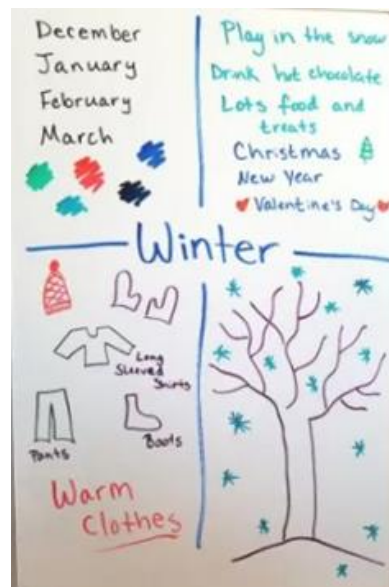 December
January
February
March
Play in the snow
Drink hot chocolate
Lots food and
treats
Christmas
New Year
Valentine's Day
Winter
Long
Sleeved
Shirts
Pants
Boots
Warm
Clothes